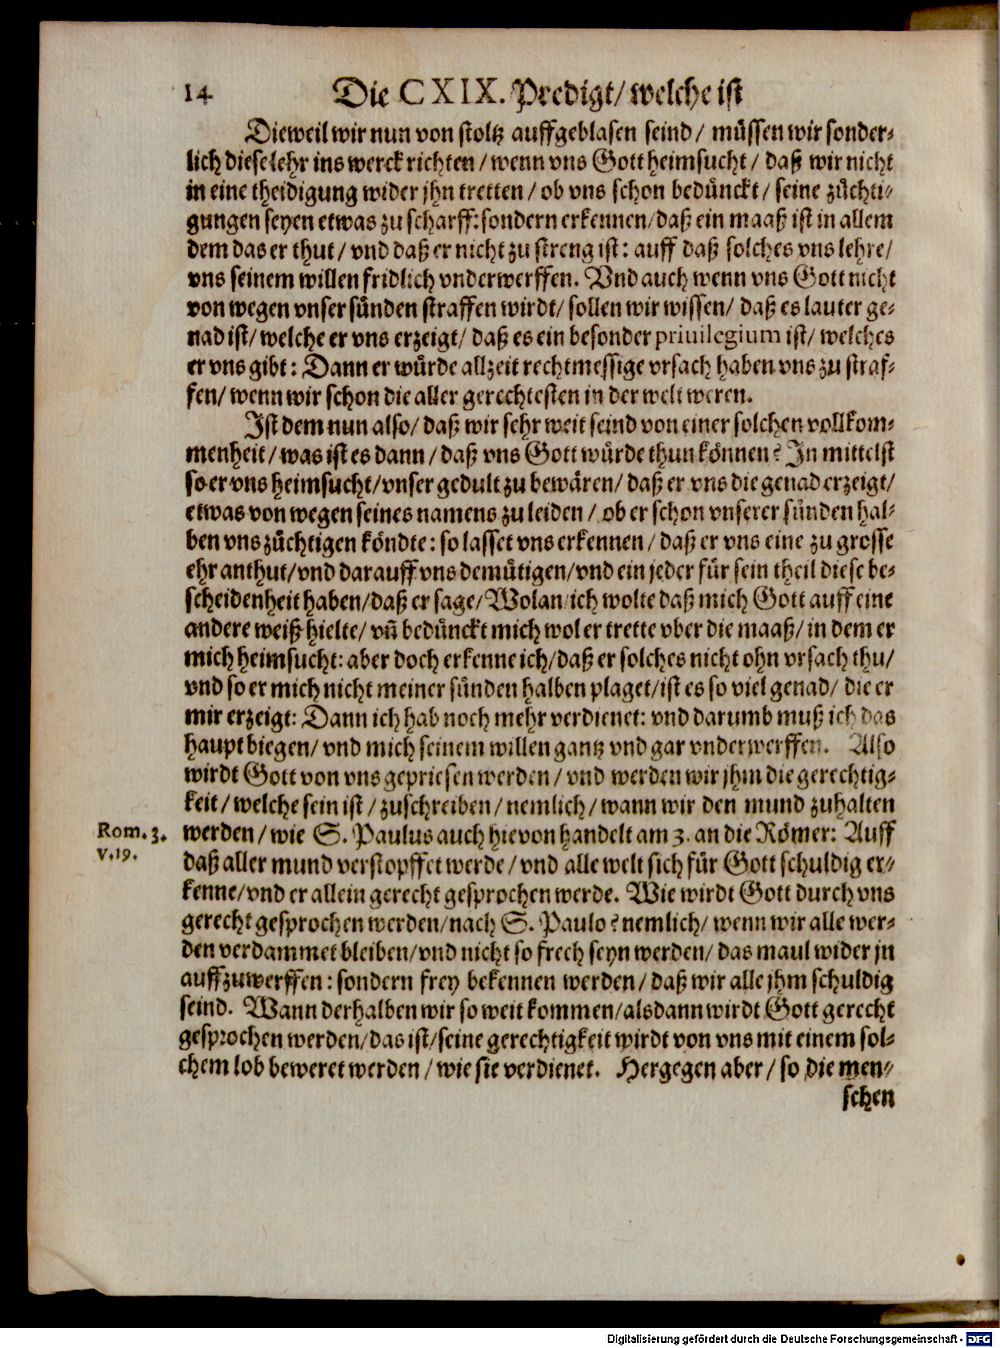 14 Die CXIX. Predigt/ welche ist
Dieweil wir nun von stoltz auffgeblasen seind/ müssen wir sonder-
lich diese lehr ins werck richten/ wenn vns Gott heimsucht/ daß wir nicht
in eine theidigung wider jhn tretten/ ob vns schon bedünckt/ seine züchti-
gungen seyen etwas zu scharff: sondern erkennen/ daß ein maaß ist in allem
dem das er thut/ vnd daß er nicht zu streng ist: auff daß solches vns lehre/
vns seinem willen fridlich vnderwerffen. Vnd auch wenn vns Gott nicht
von wegen vnser sünden straffen wirdt/ sollen wir wissen/ daß es lauter ge-
nad ist/ welche er vns erzeigt/ daß es ein besonder priuilegium ist/ welches
er vns gibt: Dann er würde allzeit rechtmessige vrsach haben vns zu straf-
fen/ wenn wir schon die aller gerechtesten in der welt weren.
Ist dem nun also/ daß wir sehr weit seind von einer solchen vollkom-
menheit/ was ist es dann/ daß vns Gott würde thun können? In mittelst
so er vns heimsucht/ vnser gedult zu bewären/ daß er vns die genad erzeigt/
etwas von wegen seines namens zu leiden/ ob er schon vnserer sünden hal-
ben vns züchtigen köndte: so lasset vns erkennen/ daß er vns eine zu grosse
ehr anthut/ vnd darauff vns demütigen/ vnd ein jeder für sein theil diese be-
scheidenheit haben/ daß er sage/ Wolan ich wolte daß mich Gott auff eine
andere weiß hielte/ vñ bedünckt mich wol er trette vber die maaß/ in dem er
mich heimsucht: aber doch erkenne ich/ daß er solches nicht ohn vrsach thu/
vnd so er mich nicht meiner sünden halben plaget/ ist es so viel genad/ die er
mir erzeigt: Dann ich hab noch mehr verdienet: vnd darumb muß ich das
haupt biegen/ vnd mich seinem willen gantz vnd gar vnderwerffen. Also
wirdt Gott von vns gepriesen werden/ vnd werden wir jhm die gerechtig-
keit/ welche sein ist/ zuschreiben/ nemlich/ wann wir den mund zuhalten
Rom. 3. werden/ wie S. Paulus auch hievon handelt am 3. an die Römer: Auff
v. 19. daß aller mund verstopffet werde/ vnd alle welt sich für Gott schuldig er-
kenne/ vnd er allein gerecht gesprochen werde. Wie wirdt Gott durch vns
gerecht gesprochen werden/ nach S. Paulo? nemlich/ wenn wir alle wer-
den verdammet bleiben/ vnd nicht so frech seyn werden/ das maul wider jn
auffzuwerffen: sondern frey bekennen werden/ daß wir alle jhm schuldig
seind. Wann derhalben wir so weit kommen/ alsdann wirdt Gott gerecht
gesprochen werden/ das ist/ seine gerechtigkeit wirdt von vns mit einem sol-
chem lob beweret werden/ wie sie verdienet. Hergegen aber/ so die men-
schen
Digitalisierung gefördert durch die Deutsche Forschungsgemeinschaft - DFG